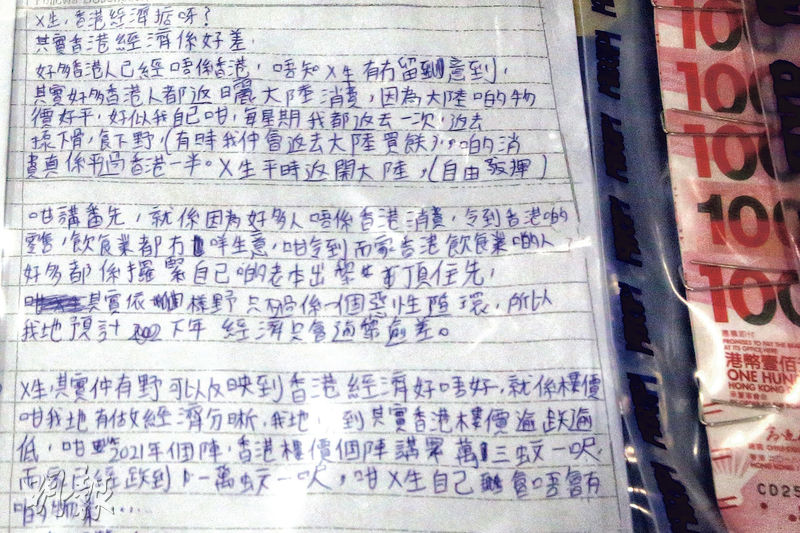 X生，香港經濟掂呀？
其實香港經濟係好差，
好多香港人已經唔係香港，唔知X生有冇留到意到，
其實好多香港人都返曬大陸消費，因為大陸啲物
價好平，好似我自己咁，每星期我都返去一次，返去
揼下骨，食下野，(有時我仲會返去大陸買餸)，啲消
費真係平過香港一半。X生平時返開大陸，(自由發揮)
咁講番先，就係因為好多人唔係香港消費，令到香港啲
零售，飲食業都冇咩生意，咁令到而家香港飲食業啲人
好多都係攞緊自己啲老本出黎頂住先，
其實依個樣野只不過係一個惡性循環，所以
我地預計下年經濟只會越黎愈差。
X生，其實仲有野可以反映到香港經濟好唔好，就係樓價
咁我地有做經濟分晰，我地，到其實香港樓價逾跌逾
低，咁2021年個陣，香港樓價個陣講緊萬三蚊一呎，
而家已經跌到一萬蚊一呎，咁X生自己會唔會有
港幣壹佰
PROMISES TO PAY THE
AT ITS OFFICE HERE
ONE HUN
HONG KONG
100
100
100
100
CD25